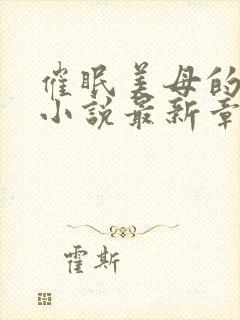 催眠美母的
小说最新章
霍斯